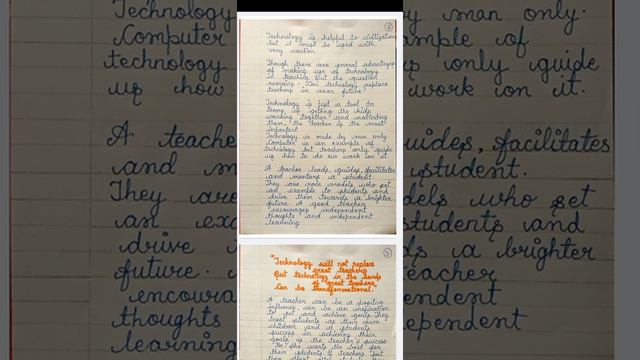 2
Technology is helpful to civilizations
but it must be used with
very caution
Though there are several advantages
of making use of technology
in teaching. But the question
remains - "Can technology replace
teachers in near future?
Technology is just a tool In
terms of getting the kids
working together and motivating
them, the teacher is the most
important
Technology is made by man only
Computer is an example of
technology but teachers only guide
us how to do our work on it.
A teacher leads, guides, facilitates
and mentors a student.
They are role models who set
an example to students and
drive them towards a brighter
future. A good teacher
encourages independent
thoughts and independent
learning
3
"Technology will not replace
great teachers
But technology in the hands
of great teachers
Can be transformational."
A teacher can be a positive
influence, can be an inspiration
to set and achieve goals. They
treat students as their own
children and a students
success in achieving their
goals is the teacher's success
He/she wants the best for
their students. If teachers